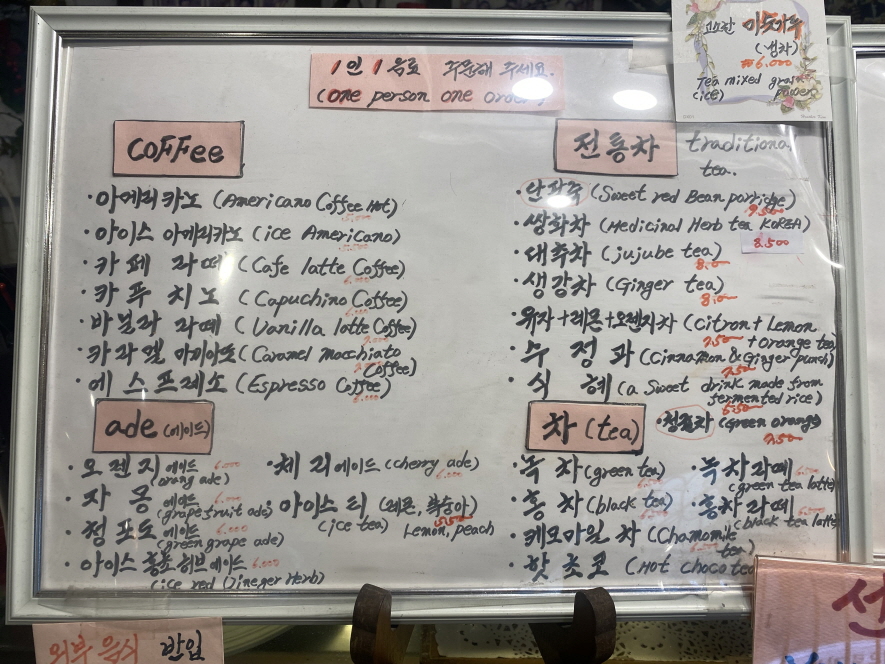 1인 1음료 주문해 주세요.
(one person one order!)
고소한 미숫가루
(냉차)
₩6.000
Tea mixed grain
(ice) powder
COFFee
·아메리카노 (Americano Coffee Hot)
5.000
·아이스 아메리카노 (ice Americano)
5.500
·카페 라떼 (Cafe latte Coffee)
6.000
·카푸치노 (Capuchino Coffee)
6.000
·바닐라 라떼 (Vanilla latte Coffee)
·카라멜 마끼아또 (Caramel mocchiato
Coffee)
·에스프레소 (Espresso Coffee)
5.000
전통차 traditional
tea.
·단팥죽 (Sweet red Bean porridge)
9.500
·쌍화차 (Medicinal Herb tea KOREA)
8.500
·대추차 (jujube tea)
8.0
·생강차 (Ginger tea)
8.0
·유자+레몬+오렌지차 (Citron + Lemon
7.50 + orange tea)
·수정과 (Cinnamon & Ginger punch)
7.50
·식혜 (a Sweet drink made from
fermented rice)
6.50
·청귤차 (Green orange)
7.50
ade (에이드)
·오렌지 에이드 6.000
(orang ade)
·자몽 에이드 6.000
(grapefruit ade)
·청포도 에이드 6.000
(green grape ade)
·아이스 홍초 허브에이드 6.000
(ice red Vineger Herb)
·체리에이드 (cherry ade)
6.000
·아이스 티 (레몬, 복숭아)
(ice tea) Lemon, peach
5.500
차 (tea)
·녹차 (green tea)
·홍차 (black tea)
·케모마일 차 (Chamomile
tea)
·핫 초코 (Hot choco tea
·녹차라떼
(green tea latte)
·홍차라떼
(black tea latte)
외부 음식 반입
선